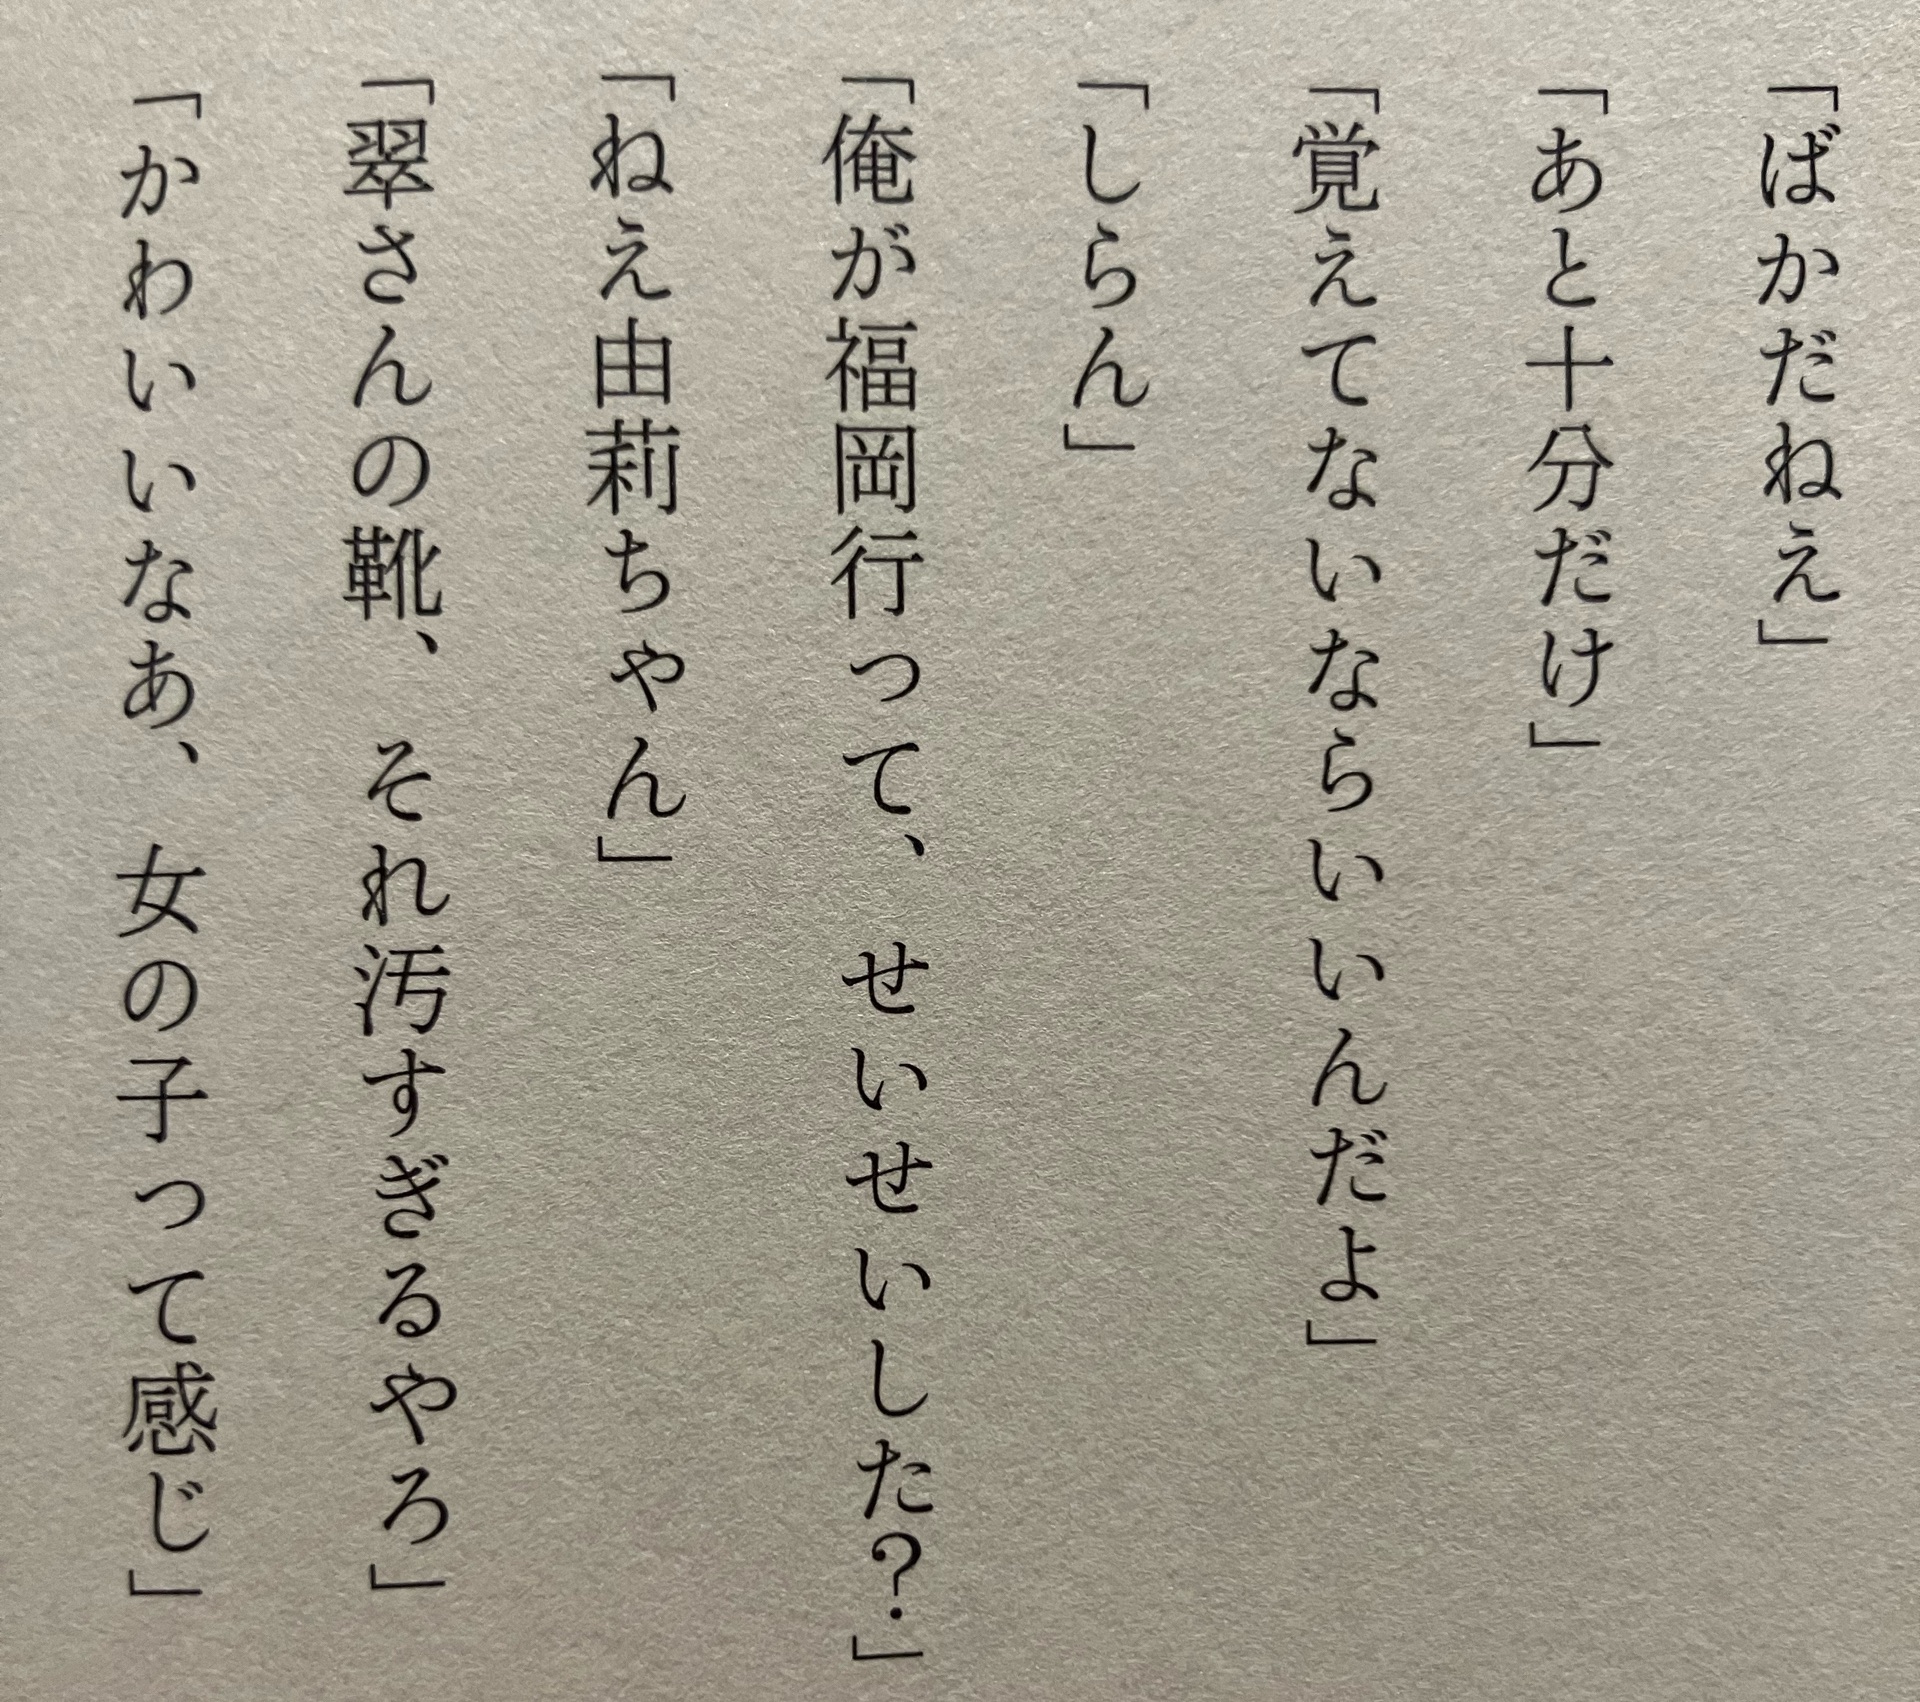 「ばかだねえ」
「あと十分だけ」
「覚えてないならいいんだよ」
「しらん」
「俺が福岡行って、せいせいした？」
「ねえ由莉ちゃん」
「翠さんの靴、それ汚すぎるやろ」
「かわいいなあ、女の子って感じ」